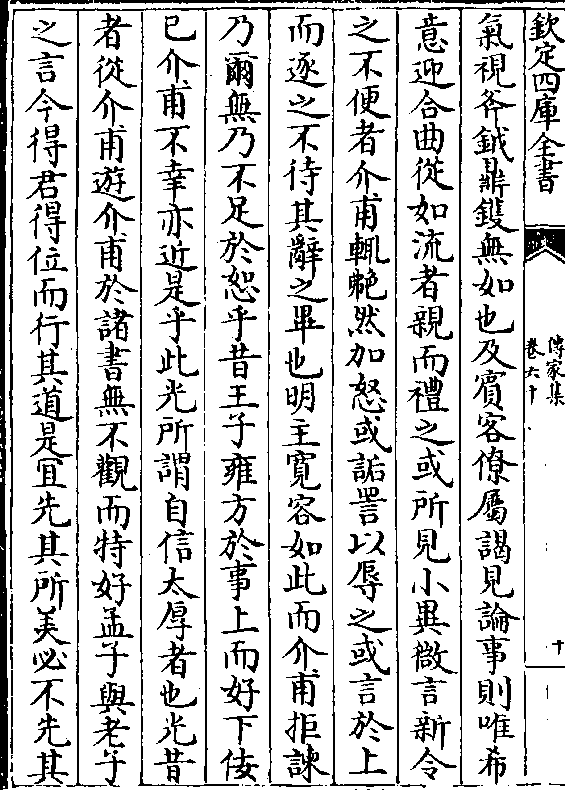 欽定四庫全書
傳家集
卷六十
十
氣視斧鉞鼎鑊無如也及賓客僚屬謁見論事則唯希
意迎合曲從如流者親而禮之或所見小異微言新令
之不便者介甫輒艴然加怒或詬詈以辱之或言於上
而逐之不待其辭之畢也明主寛容如此而介甫拒諫
乃爾無乃不足於恕乎昔王子雍方於事上而好下佞
已介甫不幸亦近是乎此光所謂自信太厚者也光昔
者從介甫遊介甫於諸書無不觀而特好孟子與老子
之言今得君得位而行其道是宜先其所美必不先其